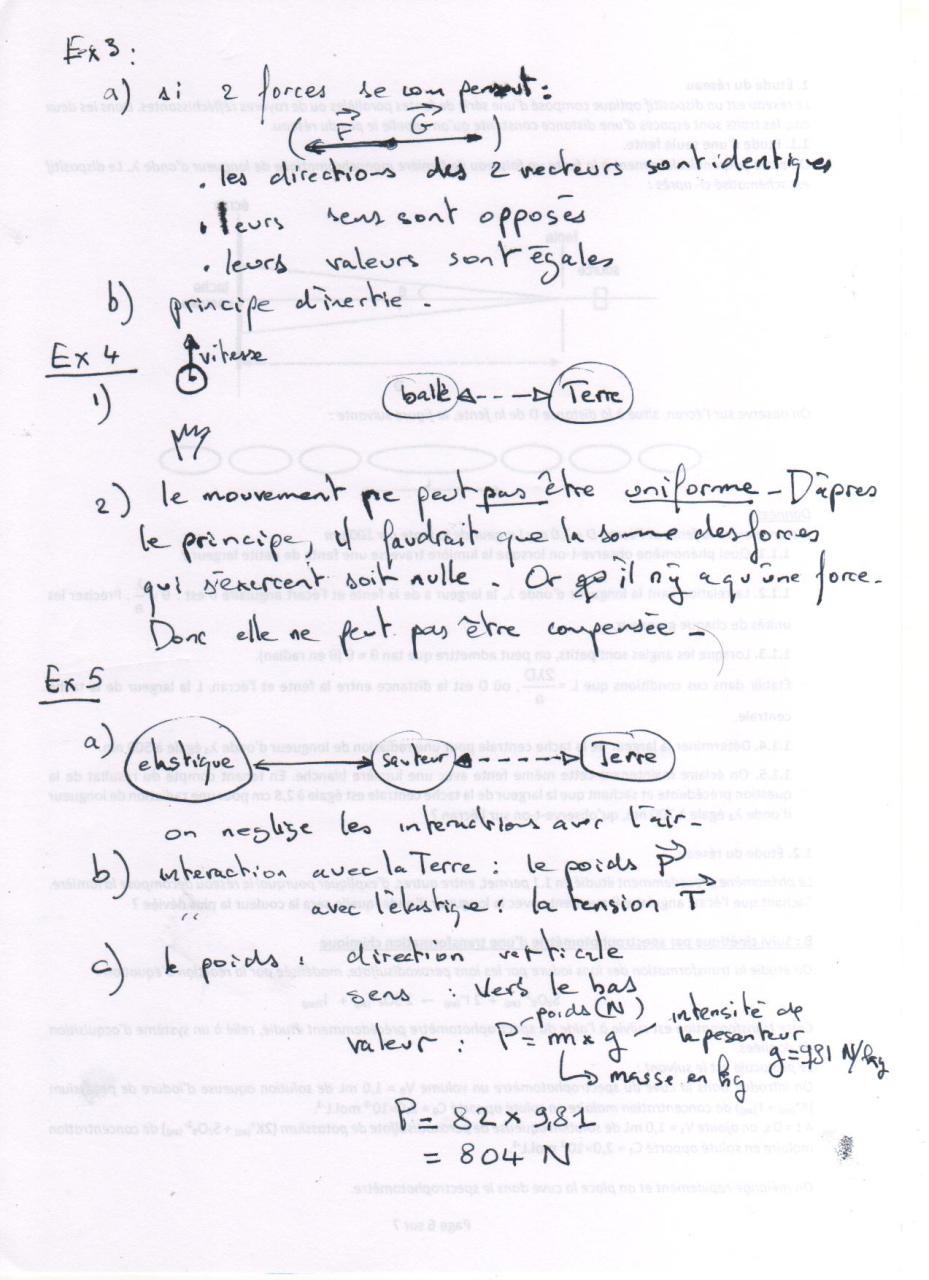 Ex 3 :
a) si 2 forces se compensent :
( F G )
. les directions des 2 vecteurs sont identiques
. leurs sens sont opposés
. leurs valeurs sont égales
b) principe d'inertie .
Ex 4
vitesse
1)
balle Terre
2) le mouvement ne peut pas être uniforme - D'après
le principe, il faudrait que la somme des forces
qui s'exercent soit nulle . Or il n'y a qu'une force.
Donc elle ne peut pas être compensée -
Ex 5
a) elastique sauteur Terre
on neglige les interactions avec l'air -
b) interaction avec la Terre : le poids P
" avec l'élastique : la tension T
c) le poids : direction verticale
sens : vers le bas
valeur : P = m x g
poids (N)
intensité de
la pesanteur
g = 9,81 N/kg
masse en kg
P = 82 x 9,81
= 804 N